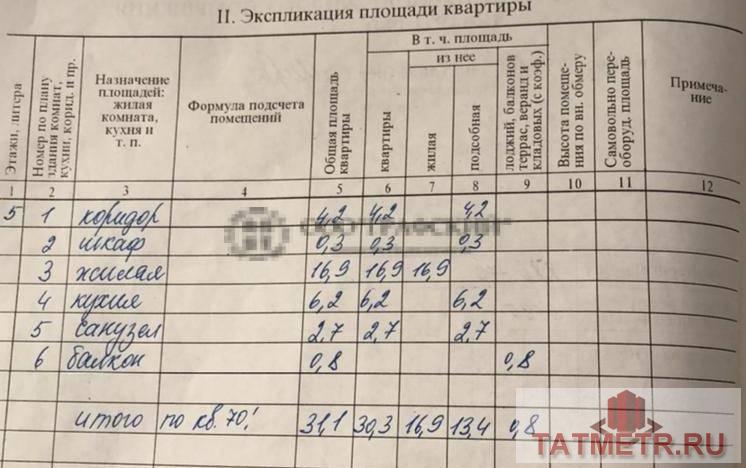 II. Экспликация площади квартиры
Этажи, литера
Номер по плану здания комнат, кухни, корид. и пр.
Назначение площадей: жилая комната, кухня и т. п.
Формула подсчета помещений
Общая площадь квартиры
В т. ч. площадь
из нее
квартиры
жилая
подсобная
лоджий, балконов террас, веранд и кладовых (с коэф.)
Высота помещения по вн. обмеру
Самовольно переоборуд. площадь
Примечание
1 2 3 4 5 6 7 8 9 10 11 12
5 1 коридор 4,2 4,2 4,2
2 шкаф 0,3 0,3 0,3
3 жилая 16,9 16,9 16,9
4 кухня 6,2 6,2 6,2
5 санузел 2,7 2,7 2,7
6 балкон 0,8 0,8
итого по кв. 70! 31,1 30,3 16,9 13,4 0,8
TATMETR.RU